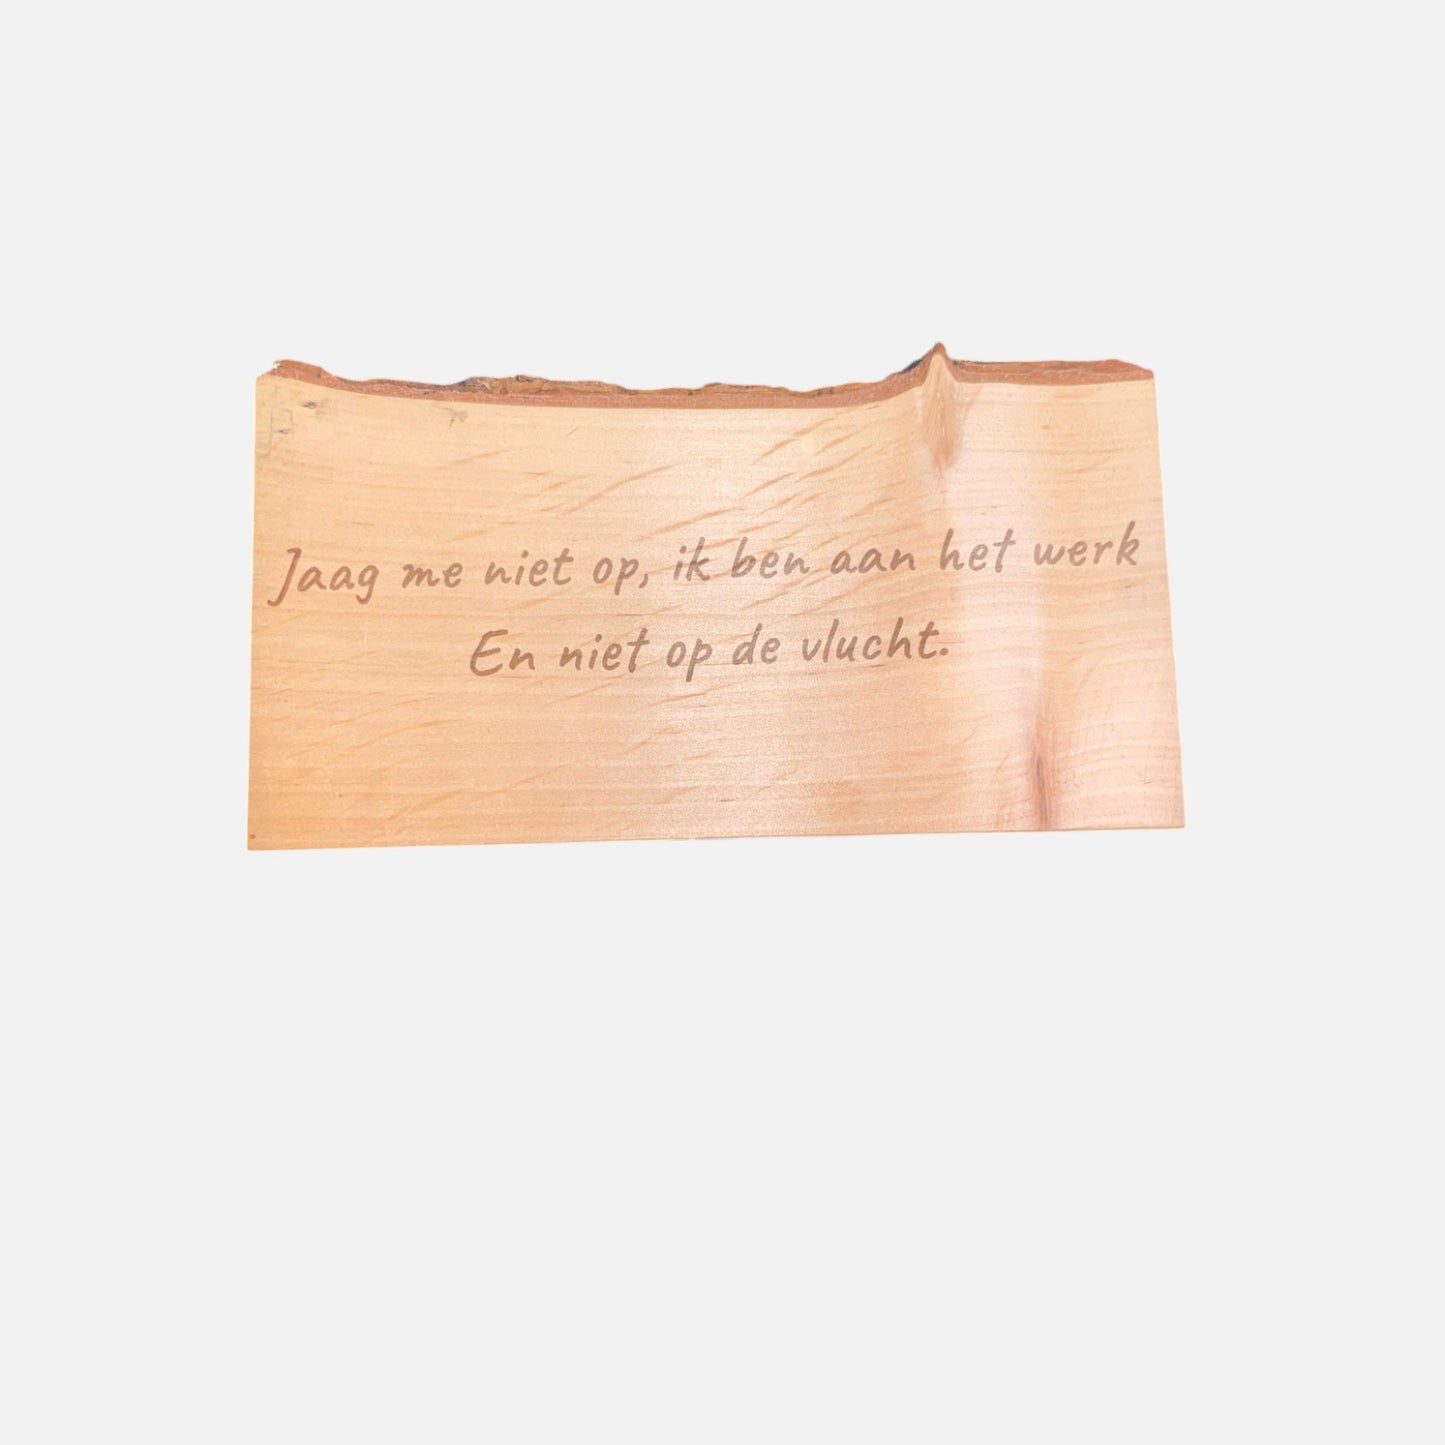 Jaag me niet op, ik ben aan het werk
En niet op de vlucht.